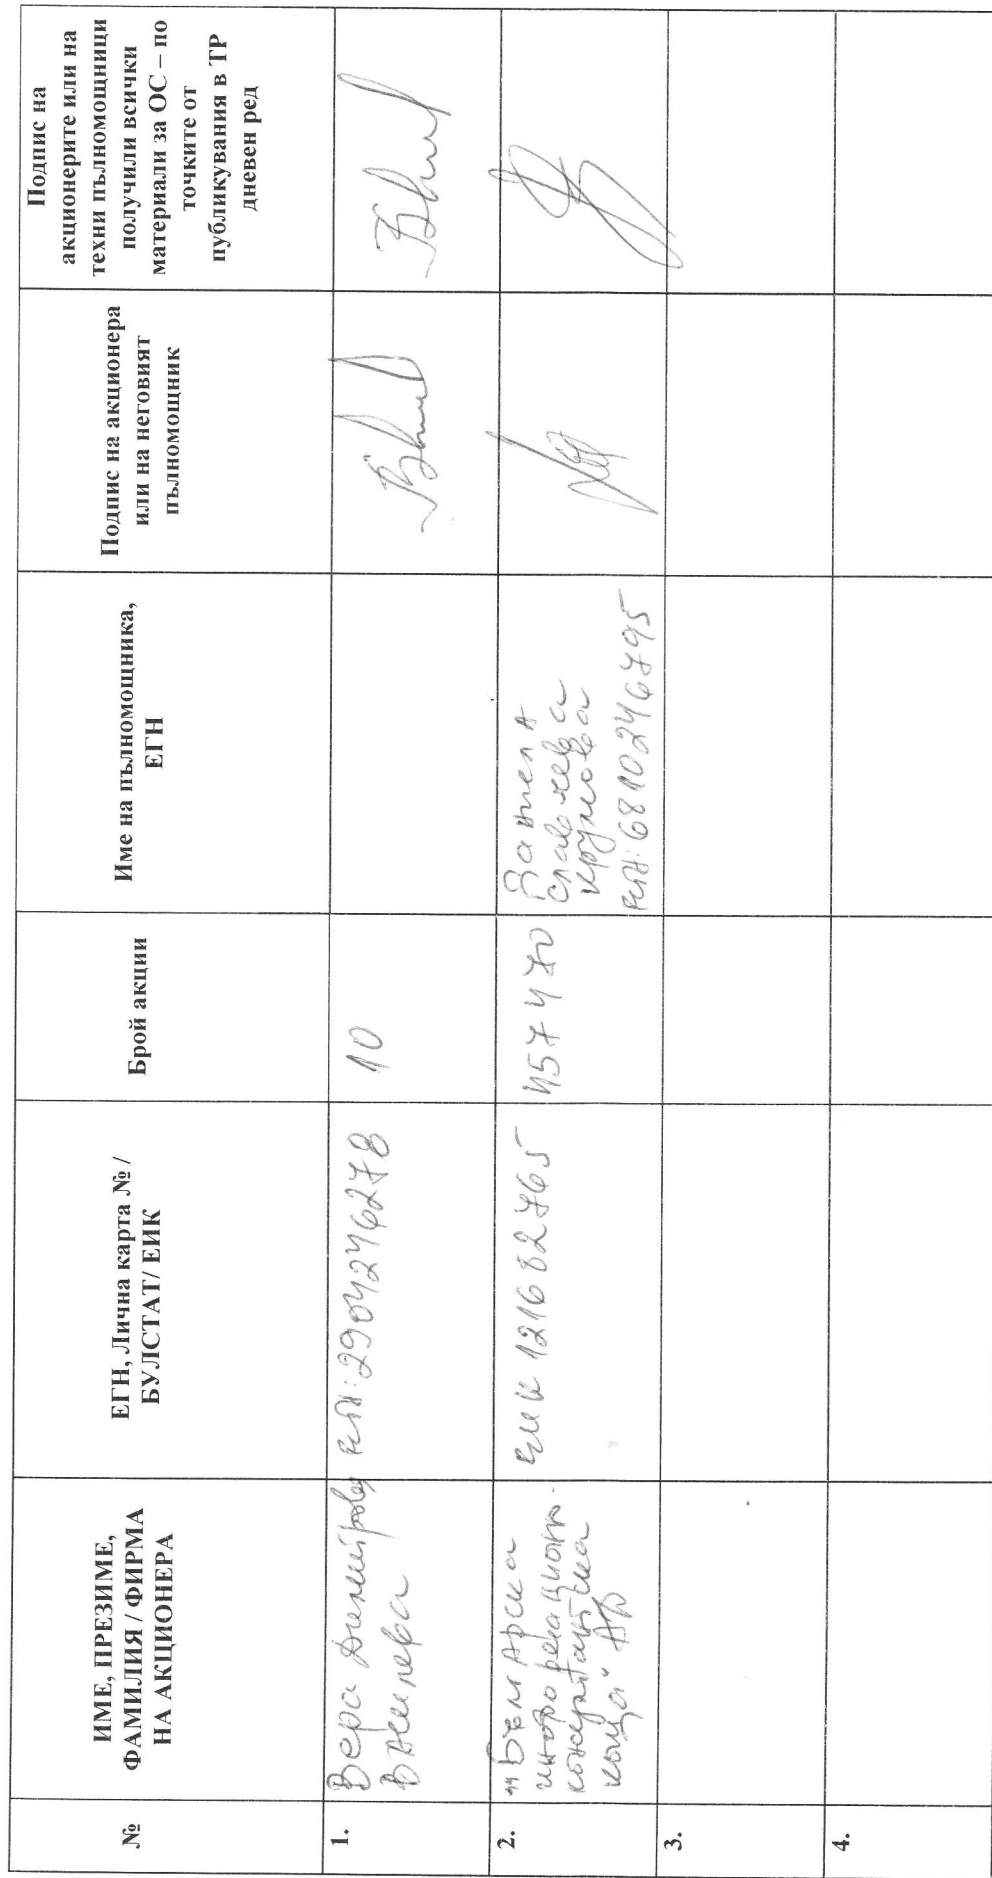 №
ИМЕ, ПРЕЗИМЕ,
ФАМИЛИЯ / ФИРМА
НА АКЦИОНЕРА
ЕГН, Лична карта № /
БУЛСТАТ/ ЕИК
Брой акции
Име на пълномощника,
ЕГН
Подпис на акционера
или на неговият
пълномощник
Подпис на
акционерите или на
техни пълномощници
получили всички
материали за ОС – по
точките от
публикувания в ТР
дневен ред
1.
Вера Димитрова
ЕГН: 2904246278
10
2.
"Българска
ЕИК 121682765
457470
Славчева
Крумова
ЕГН: 6810246795
3.
4.